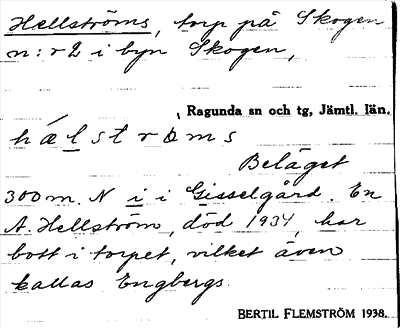 Hellströms, torp på Skogen
n:r 2 i byn Skogen,
Ragunda sn och tg, Jämtl. län.
hálströms
Beläget
300 m. N i i Gisselgård. En
A. Hellström, död 1934, har
bott i torpet, vilket även
kallas Engbergs.
BERTIL FLEMSTRÖM 1938.